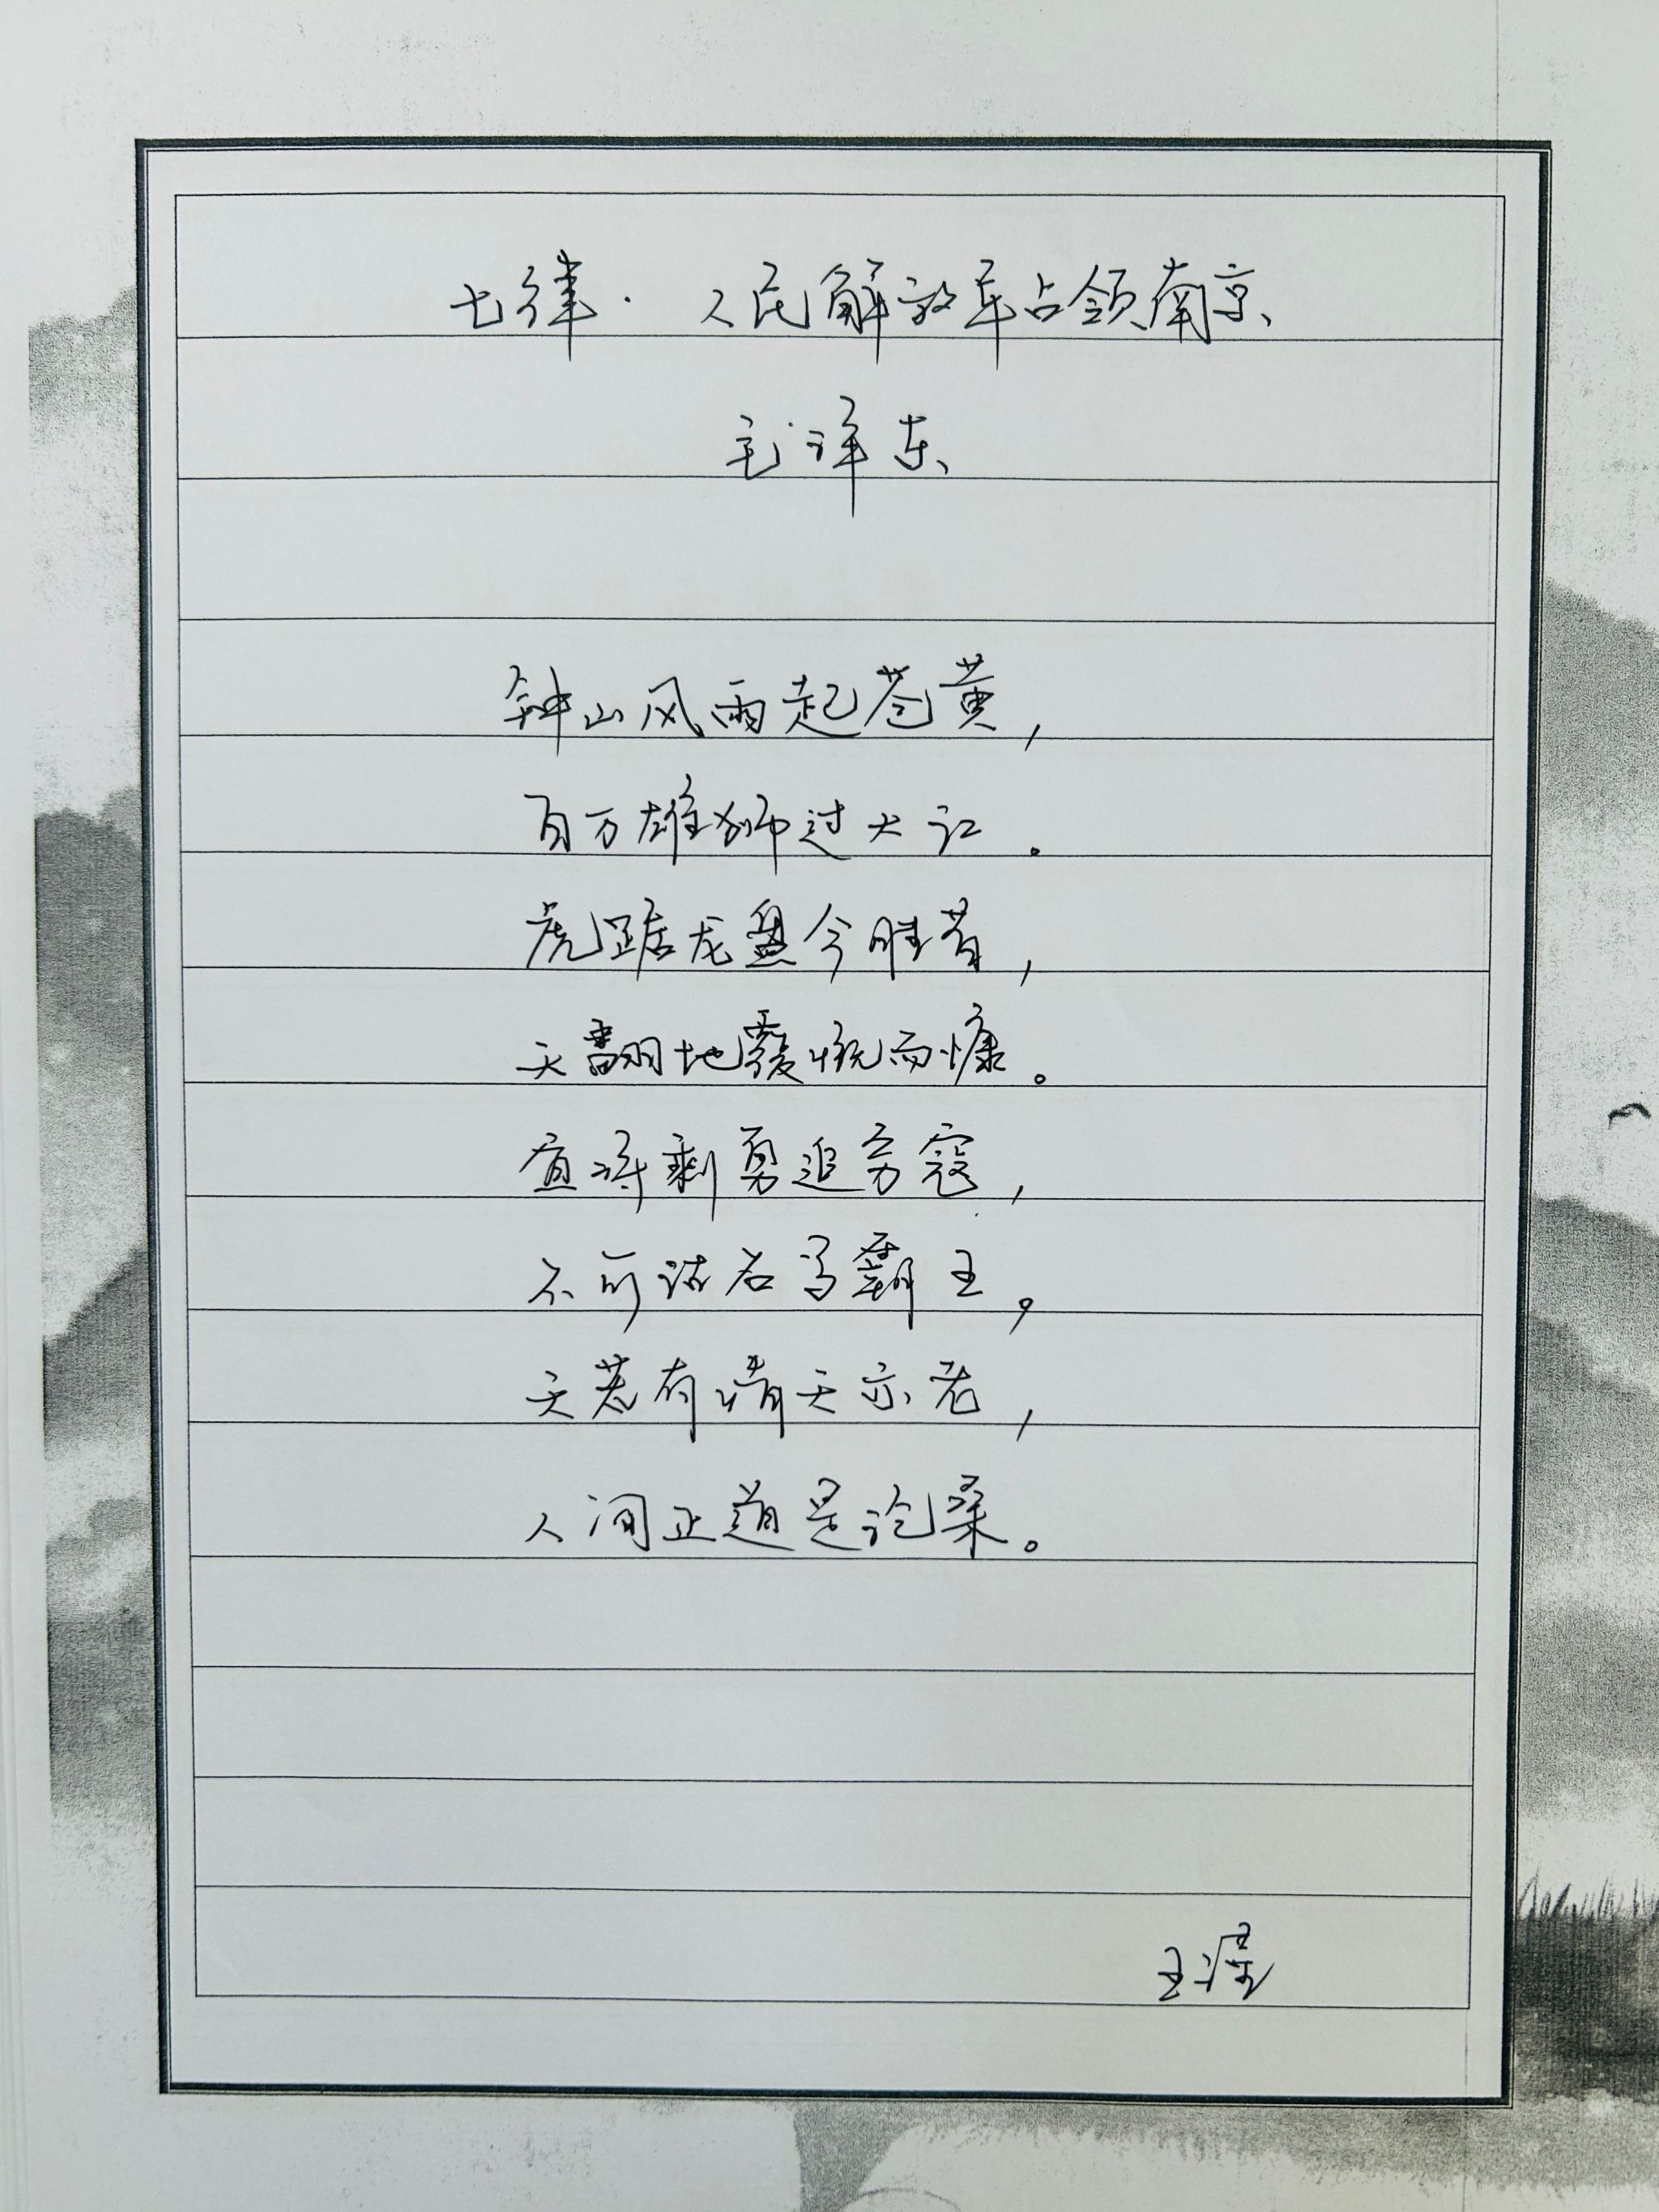 七律·人民解放军占领南京
毛泽东
钟山风雨起苍黄，
百万雄狮过大江。
虎踞龙盘今胜昔，
天翻地覆慨而慷。
宜将剩勇追穷寇，
不可沽名学霸王。
天若有情天亦老，
人间正道是沧桑。
王